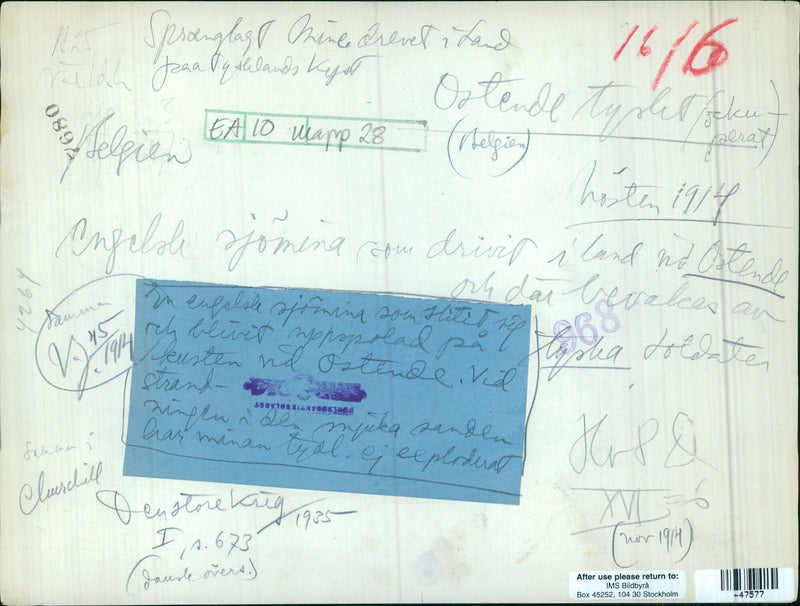 Sprænglagt Mine drevet i Land
paa Tysklands Kyst
16/6
Ostende tyskt (ocku-
perat)
(Belgien)
0897
Belgien
EA 10 mapp 28
hösten 1914
Engelsk sjömina som drivit i land vid Ostende
och där bevakas av
tyska soldater
968
4264
Samma
V.J. 45/1914
En engelsk sjömina som slitit sig
och blivit uppspolad på
kusten vid Ostende. Vid
strand-
ningen i den mjuka sanden
har minan tydl. ej exploderat
Samma i
Churchill
Den store Krig
1935
I, s. 673
(danske övers.)
Hv 8 D
XVI = 6
(nov 1914)
After use please return to:
IMS Bildbyrå
Box 45252, 104 30 Stockholm
-47577